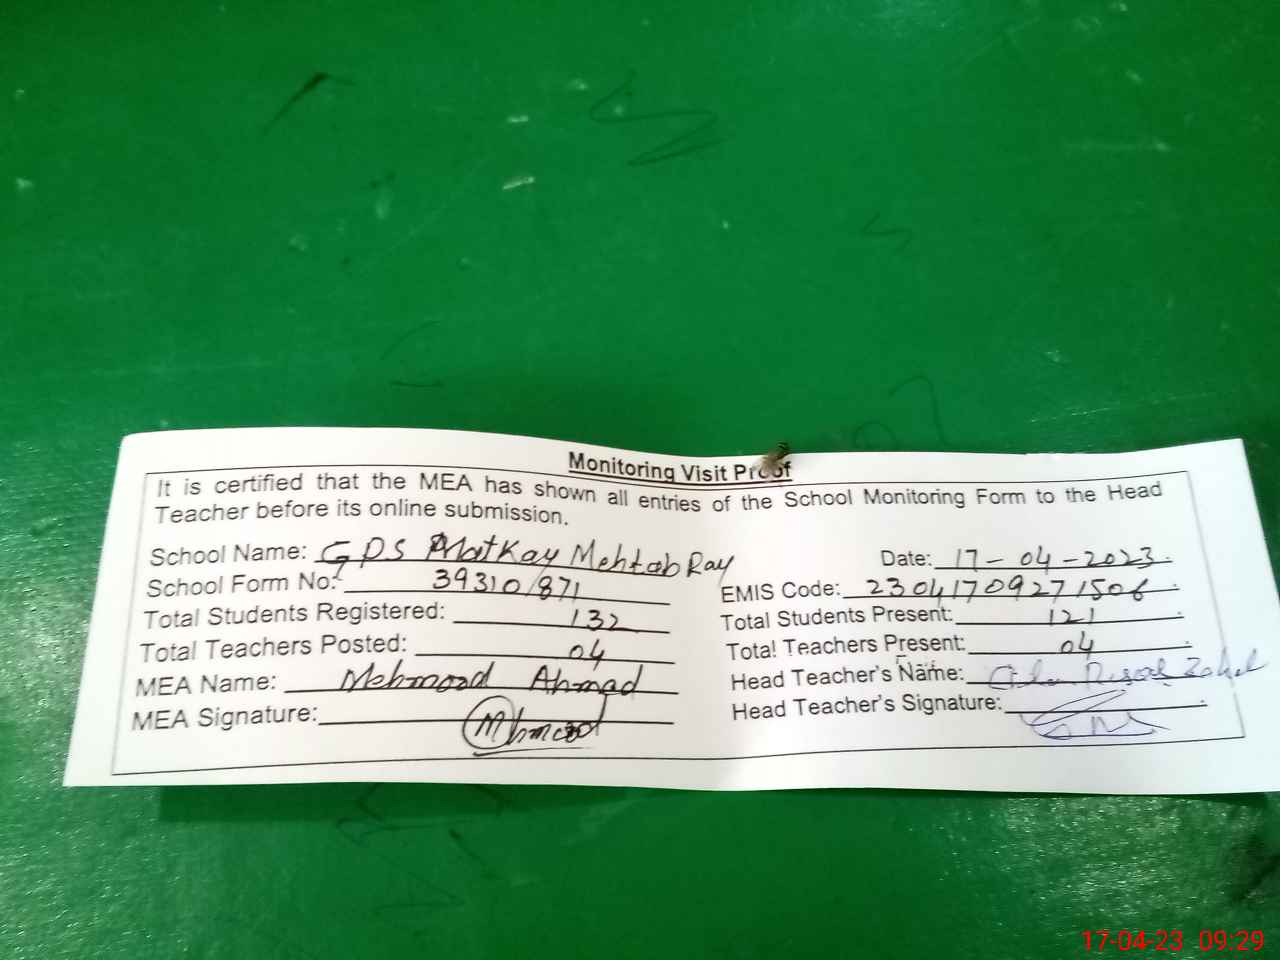 Monitoring Visit Proof
It is certified that the MEA has shown all entries of the School Monitoring Form to the Head
Teacher before its online submission.
School Name: GPS Matkay Mehtab Ray Date: 17-04-2023
School Form No: 39310/871 EMIS Code: 23041709271506
Total Students Registered: 132 Total Students Present: 121
Total Teachers Posted: 04 Total Teachers Present: 04
MEA Name: Mehmood Ahmad Head Teacher's Name:
MEA Signature: Head Teacher's Signature:
17-04-23 09:29